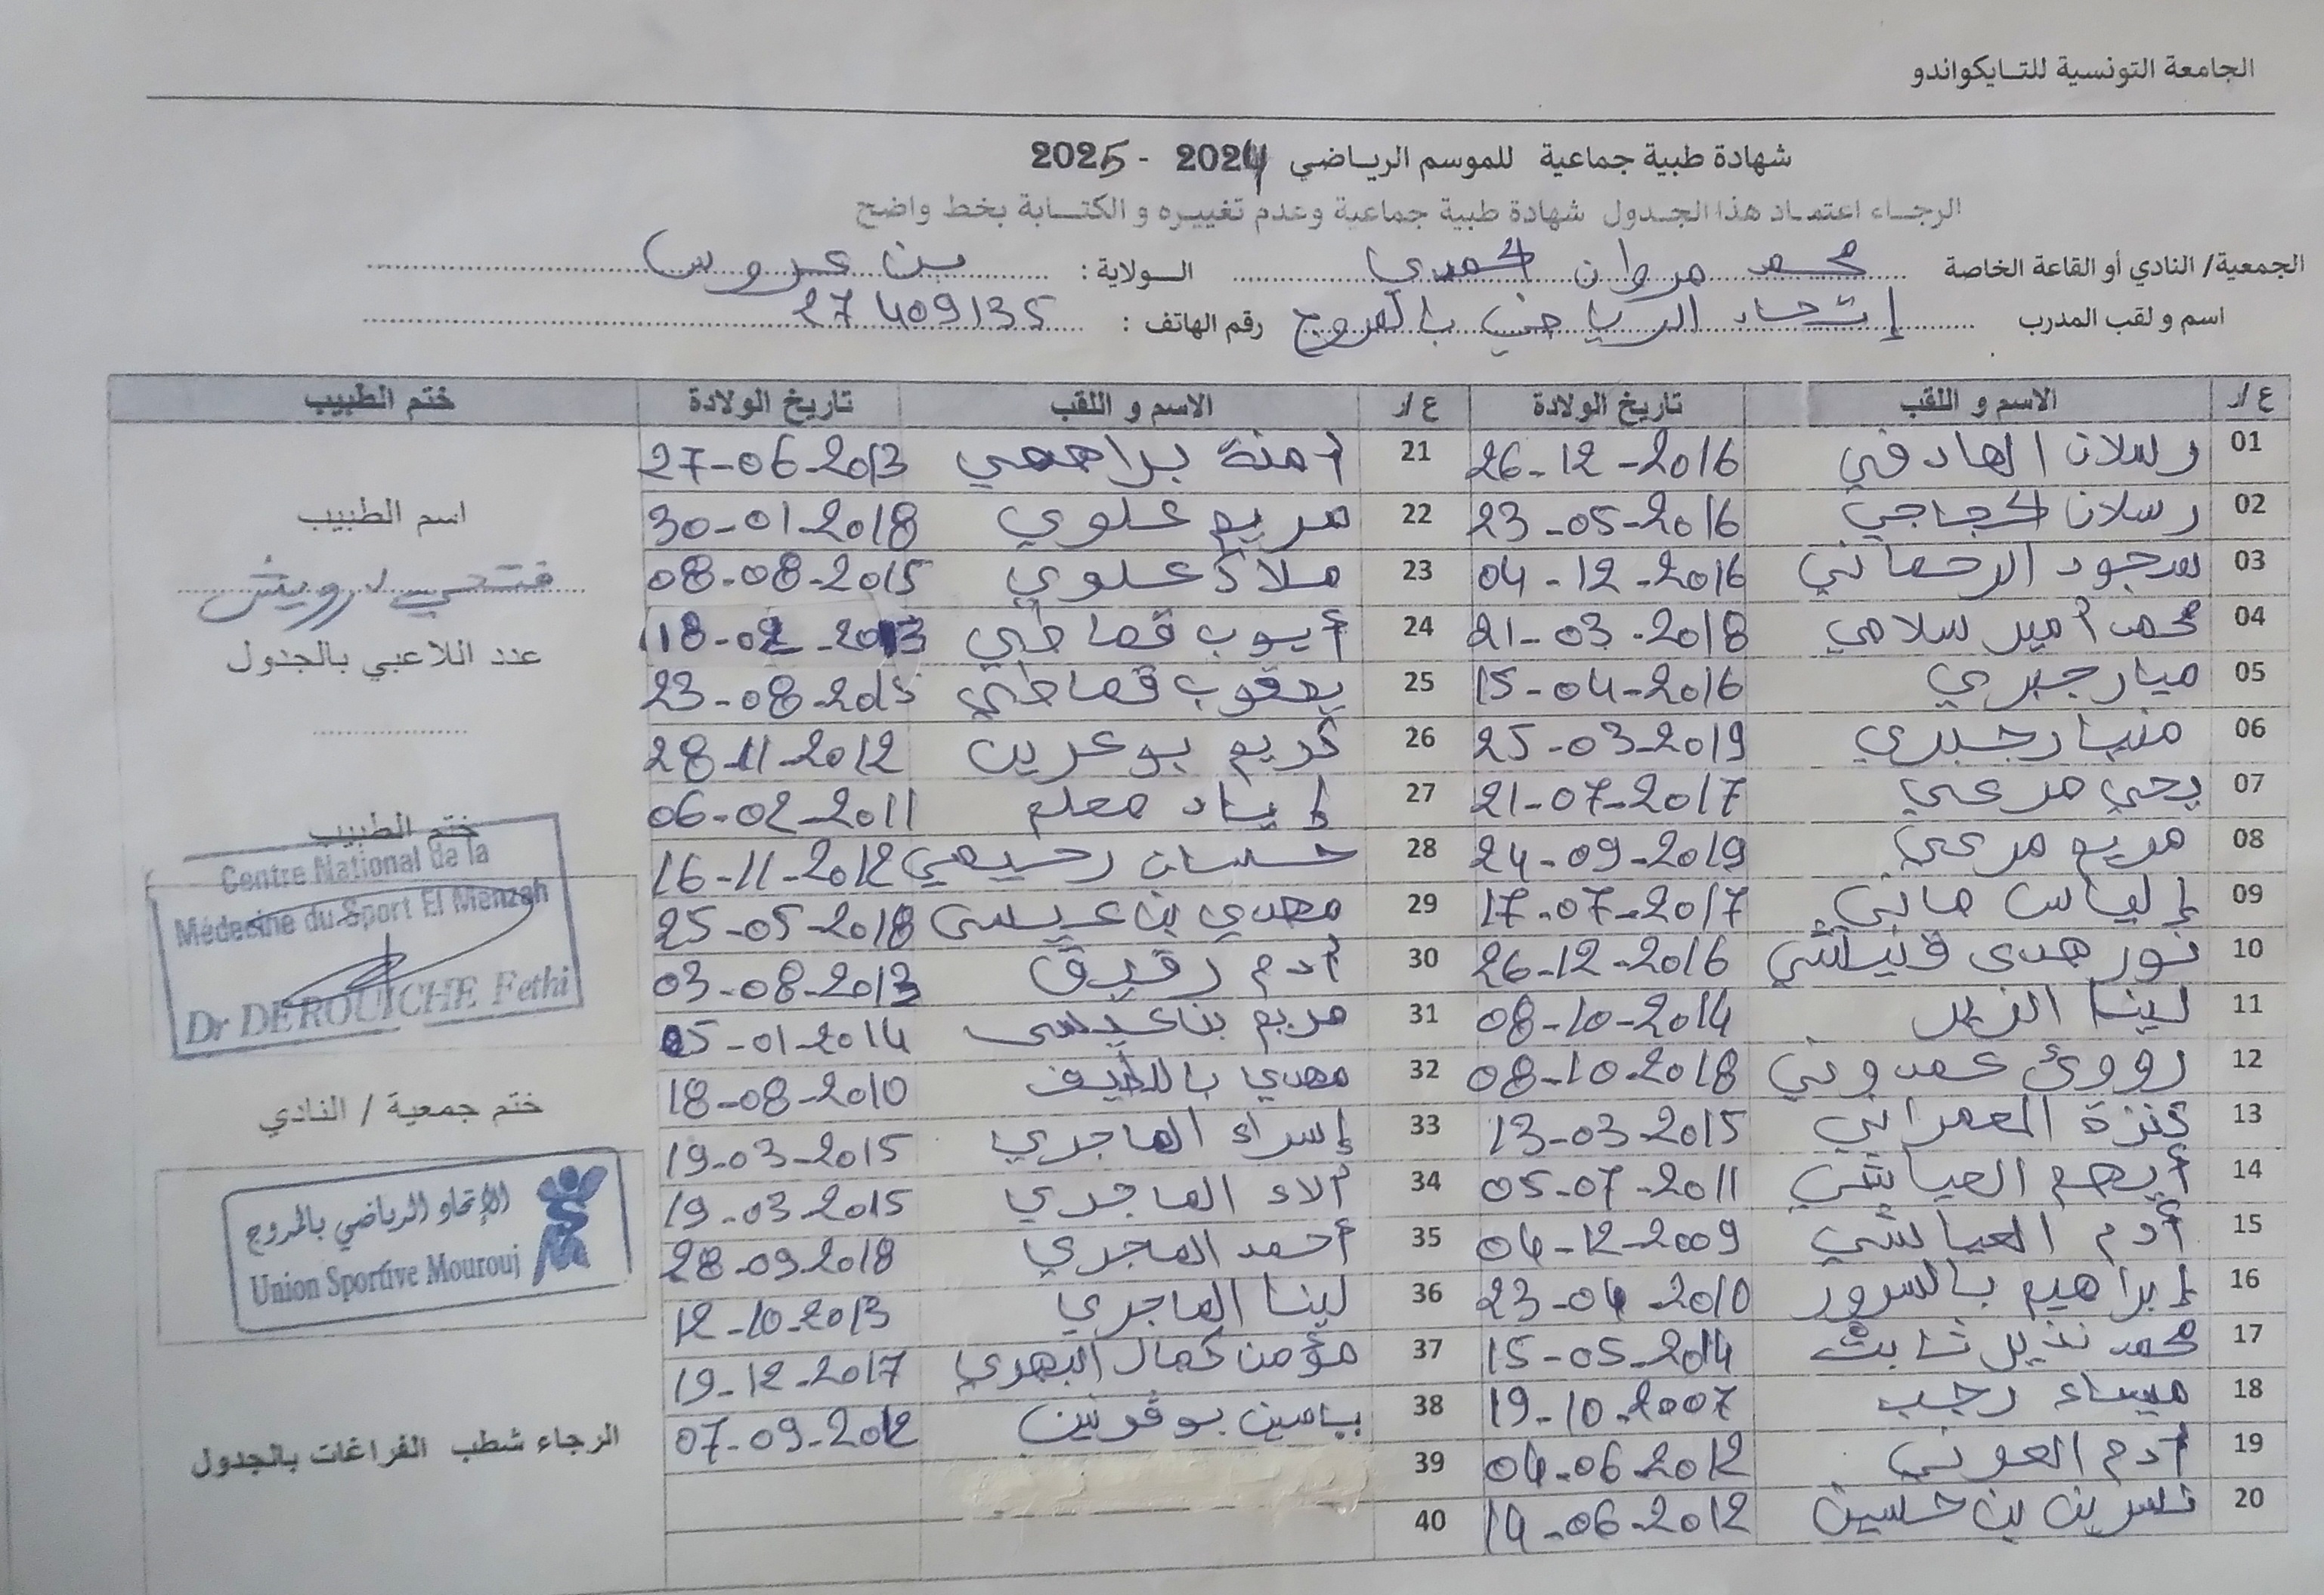 الجامعة التونسية للتـايكواندو
شهادة طبية جماعية للموسم الريـاضي 2024 - 2025
الرجـاء اعتمـاد هذا الجـدول شهادة طبية جماعية وعدم تغييـره و الكتـابة بخط واضح
الجمعية/ النادي أو القاعة الخاصة محمد مروان الحمدي الـولاية : بن عروس
اسم و لقب المدرب إتحاد الرياضي بالمروج رقم الهاتف : 27409135
ع/ر الاسم و اللقب تاريخ الولادة ع/ر الاسم و اللقب تاريخ الولادة ختم الطبيب
01 رسلان الهادفي 26-12-2016 21 آمنة براهمي 27-06-2013
02 رسلان الحجاجي 23-05-2016 22 مريم علوي 30-01-2018
03 سجود الرحماني 04-12-2016 23 ملاك علوي 08-08-2015
04 محمد أمير سلامي 21-03-2018 24 أيوب قماطي 18-02-2013
05 ميار جبري 15-04-2016 25 يعقوب قماطي 23-08-2015
06 منيار جبري 25-03-2019 26 كريم بوعرين 28-11-2012
07 يحي مرعي 21-07-2017 27 إياد معلم 06-02-2011
08 مريم مرعي 24-09-2019 28 حسان رحيمي 16-11-2012
09 إلياس هاني 17-07-2017 29 مهدي بن عيسى 25-05-2018
10 نور هدى 26-12-2016 30 آدم رقيق 03-08-2013
11 لينا 08-10-2014 31 مريم بن عيسى 05-01-2014
12 رؤى عمدوني 08-10-2018 32 مهدي باللطيف 18-08-2010
13 كنزة العمراني 13-03-2015 33 إسراء الماجري 19-03-2015
14 أيهم العياشي 05-07-2011 34 آلاء الماجري 19-03-2015
15 آدم العياشي 04-12-2009 35 أحمد الماجري 28-09-2018
16 إبراهيم بالسرور 23-04-2010 36 لينا الماجري 12-10-2013
17 محمد نذير ثابت 15-05-2014 37 مؤمن كمال 19-12-2017
18 ميساء رجب 19-10-2007 38 ياسين 07-09-2012
19 آدم العوني 04-06-2012 39
20 نسرين بن حسين 14-06-2012 40
اسم الطبيب
فتحي درويش
عدد اللاعبي بالجدول
ختم الطبيب
Centre National de la
Médecine du Sport El Menzah
Dr DEROUICHE Fethi
ختم جمعية / النادي
الإتحاد الرياضي بالمروج
Union Sportive Mourouj
الرجاء شطب الفراغات بالجدول